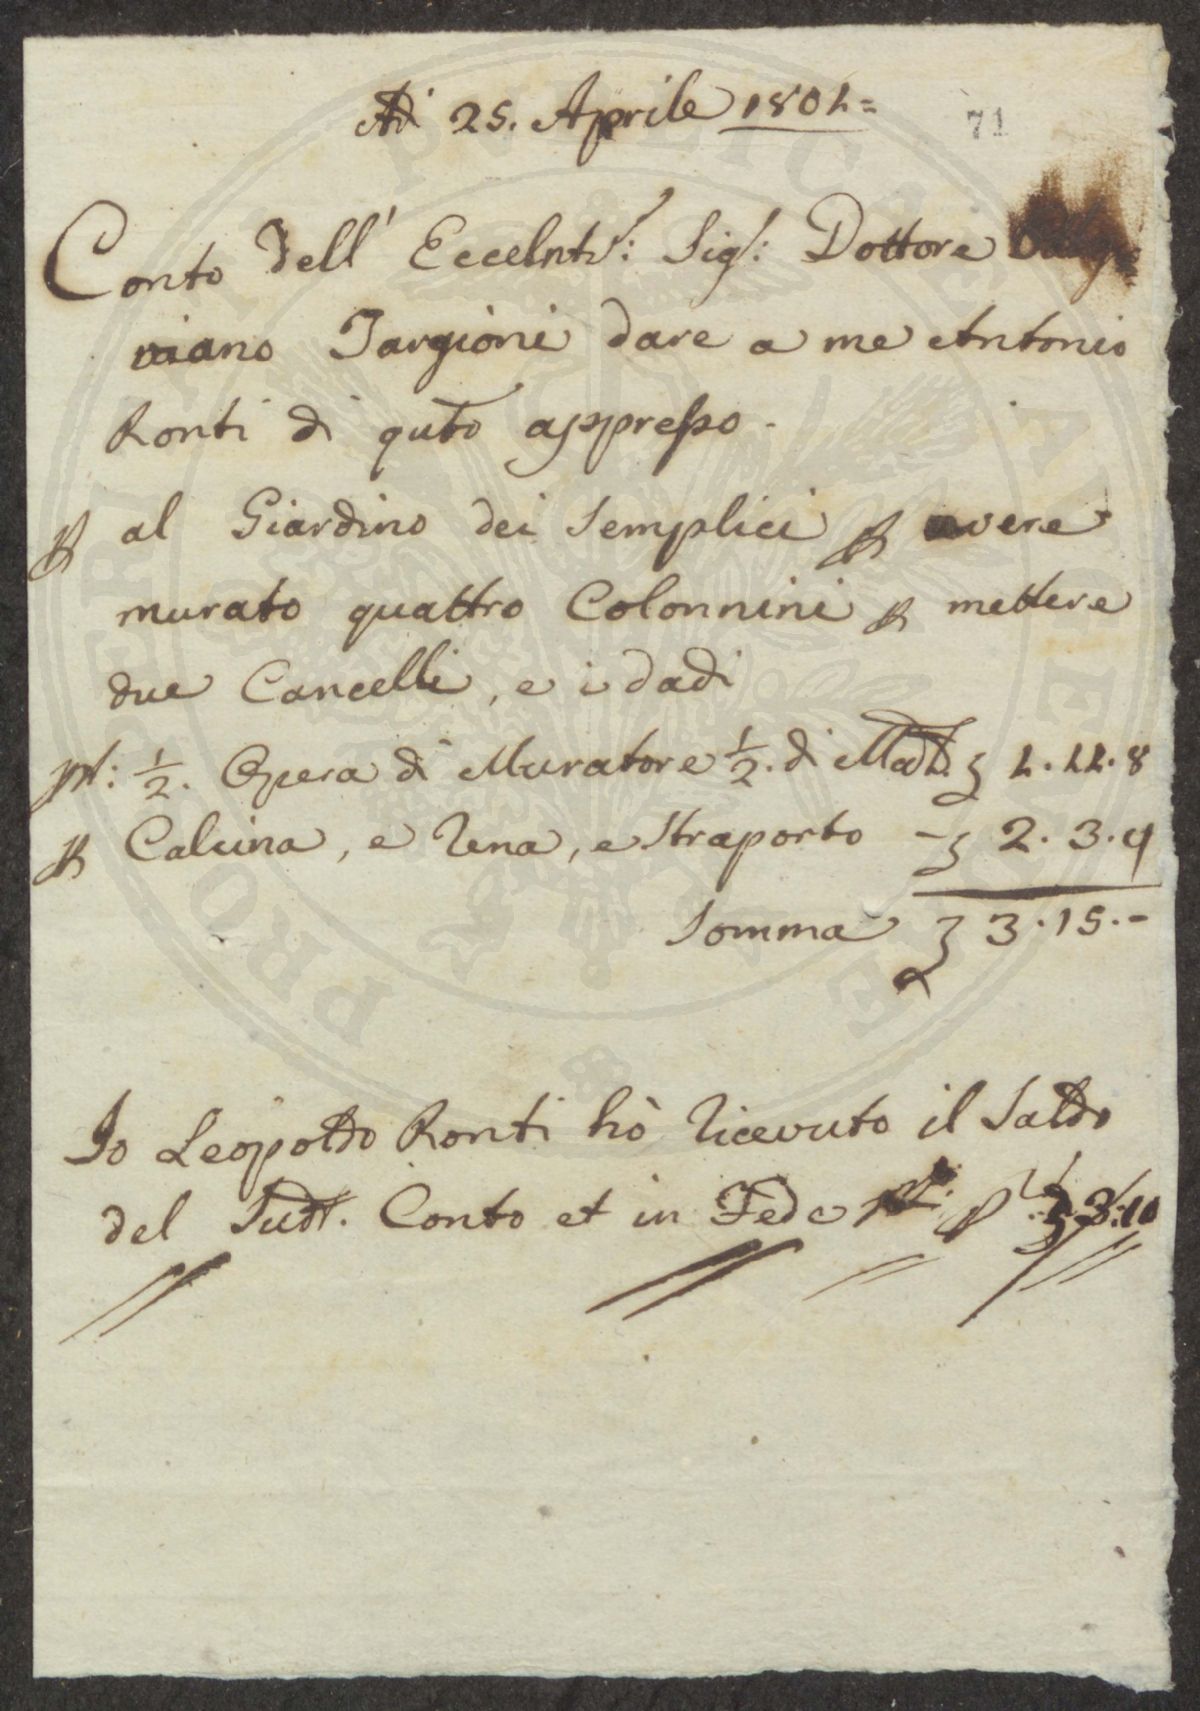 Adì 25. Aprile 1801=
71
Conto dell' Eccelntis.: Sig.: Dottore Ottaviano
viano Targioni dare a me Antonio
Ronti di quto appresso.
P al Giardino dei Semplici P avere
murato quattro Colonnini P mettere
due Cancelli, e i dadi
pr: 1/2. Opera di Muratore 1/2. di Mad. £ 1.11.8
P Calcina, e Rena, e Straporto - £ 2.3.4
Somma £ 3.15.-
Io Leopoldo Ronti hò Ricevuto il Saldo
del Sud. Conto et in Fede £ 3:10
PRO PVBLICAE VTILITATE